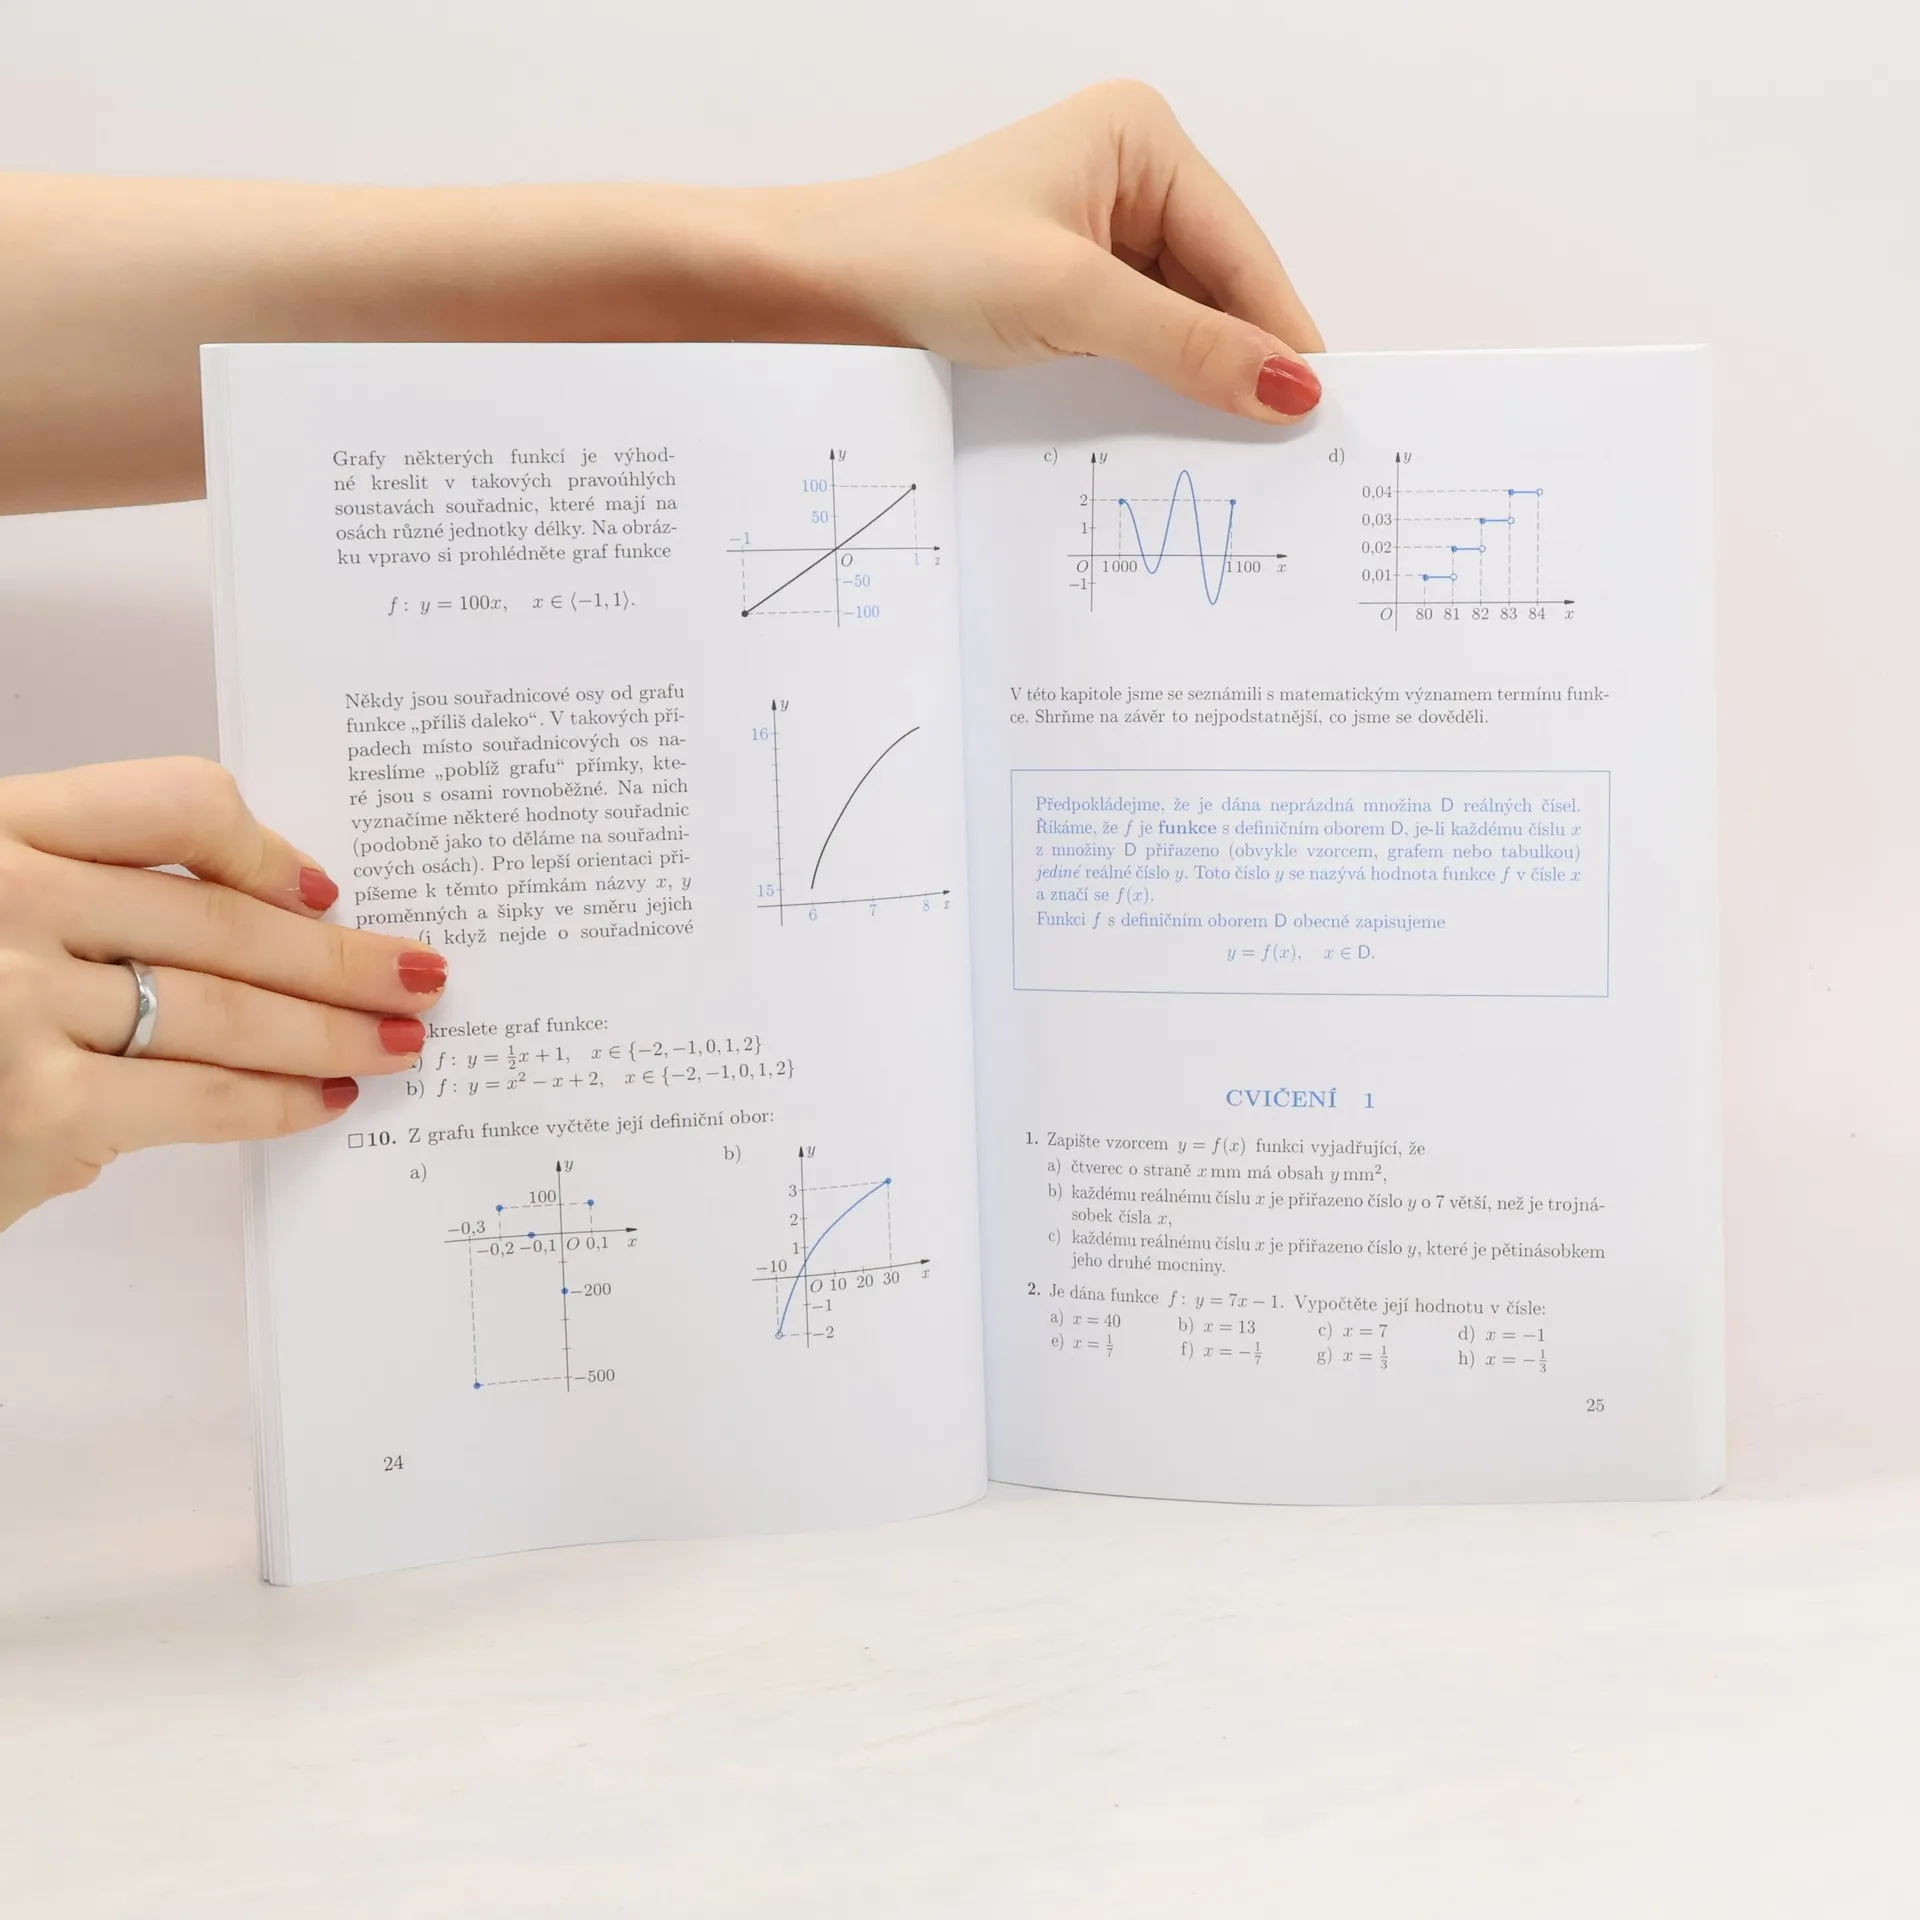 Grafy některých funkcí je výhod-
né kreslit v takových pravoúhlých
soustavách souřadnic, které mají na
osách různé jednotky délky. Na obráz-
ku vpravo si prohlédněte graf funkce
f: y = 100x, x ∈ ⟨−1, 1⟩.
y
100
50
−1
O
1 x
−50
−100
Někdy jsou souřadnicové osy od grafu
funkce „příliš daleko“. V takových pří-
padech místo souřadnicových os na-
kreslíme „poblíž grafu“ přímky, kte-
ré jsou s osami rovnoběžné. Na nich
vyznačíme některé hodnoty souřadnic
(podobně jako to děláme na souřadni-
cových osách). Pro lepší orientaci při-
píšeme k těmto přímkám názvy x, y
proměnných a šipky ve směru jejich
(i když nejde o souřadnicové
y
16
15
6 7 8 x
kreslete graf funkce:
) f: y = ½x + 1, x ∈ {−2, −1, 0, 1, 2}
b) f: y = x² − x + 2, x ∈ {−2, −1, 0, 1, 2}
□10. Z grafu funkce vyčtěte její definiční obor:
a)
y
100
−0,3
−0,2 −0,1 O 0,1 x
−200
−500
b)
y
3
2
1
−10
O 10 20 30 x
−1
−2
24
c)
y
2
1
O 1000 1100 x
−1
d)
y
0,04
0,03
0,02
0,01
O 80 81 82 83 84 x
V této kapitole jsme se seznámili s matematickým významem termínu funk-
ce. Shrňme na závěr to nejpodstatnější, co jsme se dověděli.
Předpokládejme, že je dána neprázdná množina D reálných čísel.
Říkáme, že f je funkce s definičním oborem D, je-li každému číslu x
z množiny D přiřazeno (obvykle vzorcem, grafem nebo tabulkou)
jediné reálné číslo y. Toto číslo y se nazývá hodnota funkce f v čísle x
a značí se f(x).
Funkci f s definičním oborem D obecně zapisujeme
y = f(x), x ∈ D.
CVIČENÍ 1
1. Zapište vzorcem y = f(x) funkci vyjadřující, že
a) čtverec o straně x mm má obsah y mm²,
b) každému reálnému číslu x je přiřazeno číslo y o 7 větší, než je trojná-
sobek čísla x,
c) každému reálnému číslu x je přiřazeno číslo y, které je pětinásobkem
jeho druhé mocniny.
2. Je dána funkce f: y = 7x − 1. Vypočtěte její hodnotu v čísle:
a) x = 40 b) x = 13 c) x = 7 d) x = −1
e) x = 1/7 f) x = −1/7 g) x = 1/3 h) x = −1/3
25